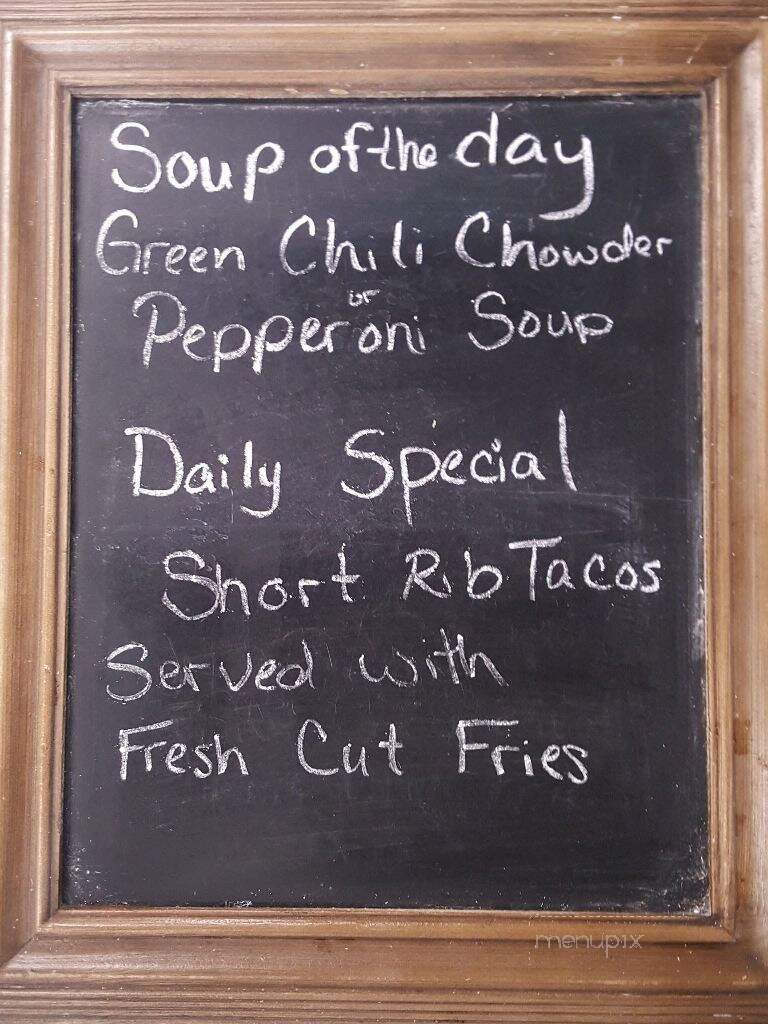 Soup of the day
Green Chili Chowder
or
Pepperoni Soup
Daily Special
Short Rib Tacos
Served with
Fresh Cut Fries
menupix